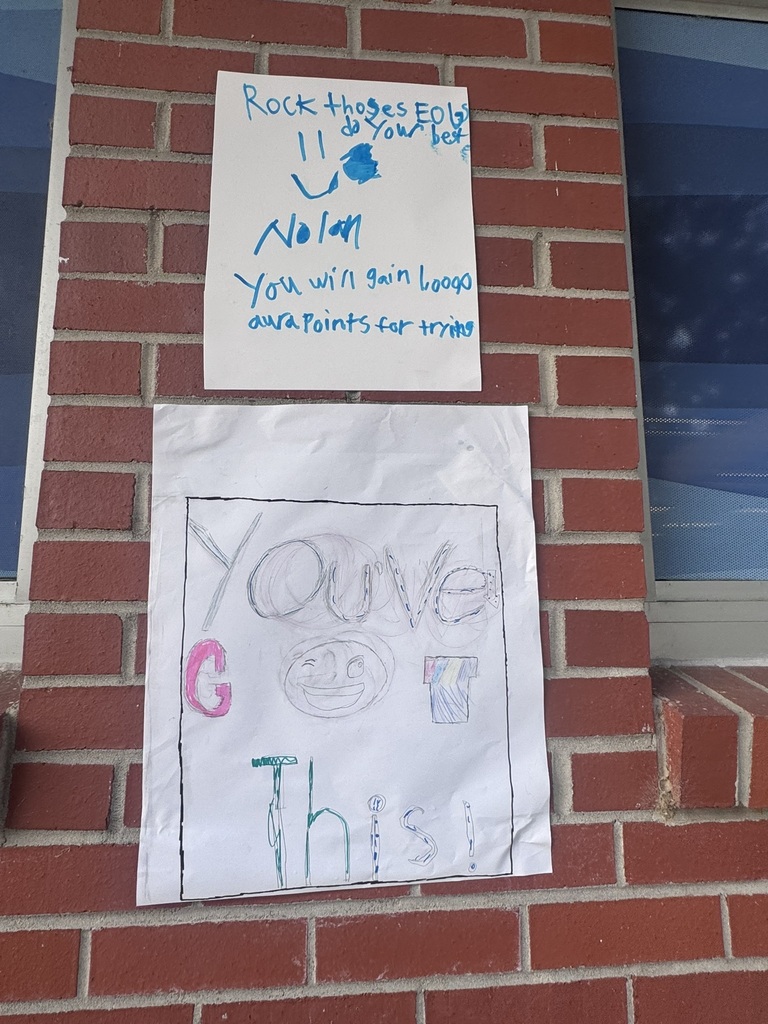 Rock thoses EOGs
do Your best
Nolan
You will gain 10000
aura Points for trying
You've
GOT
This!